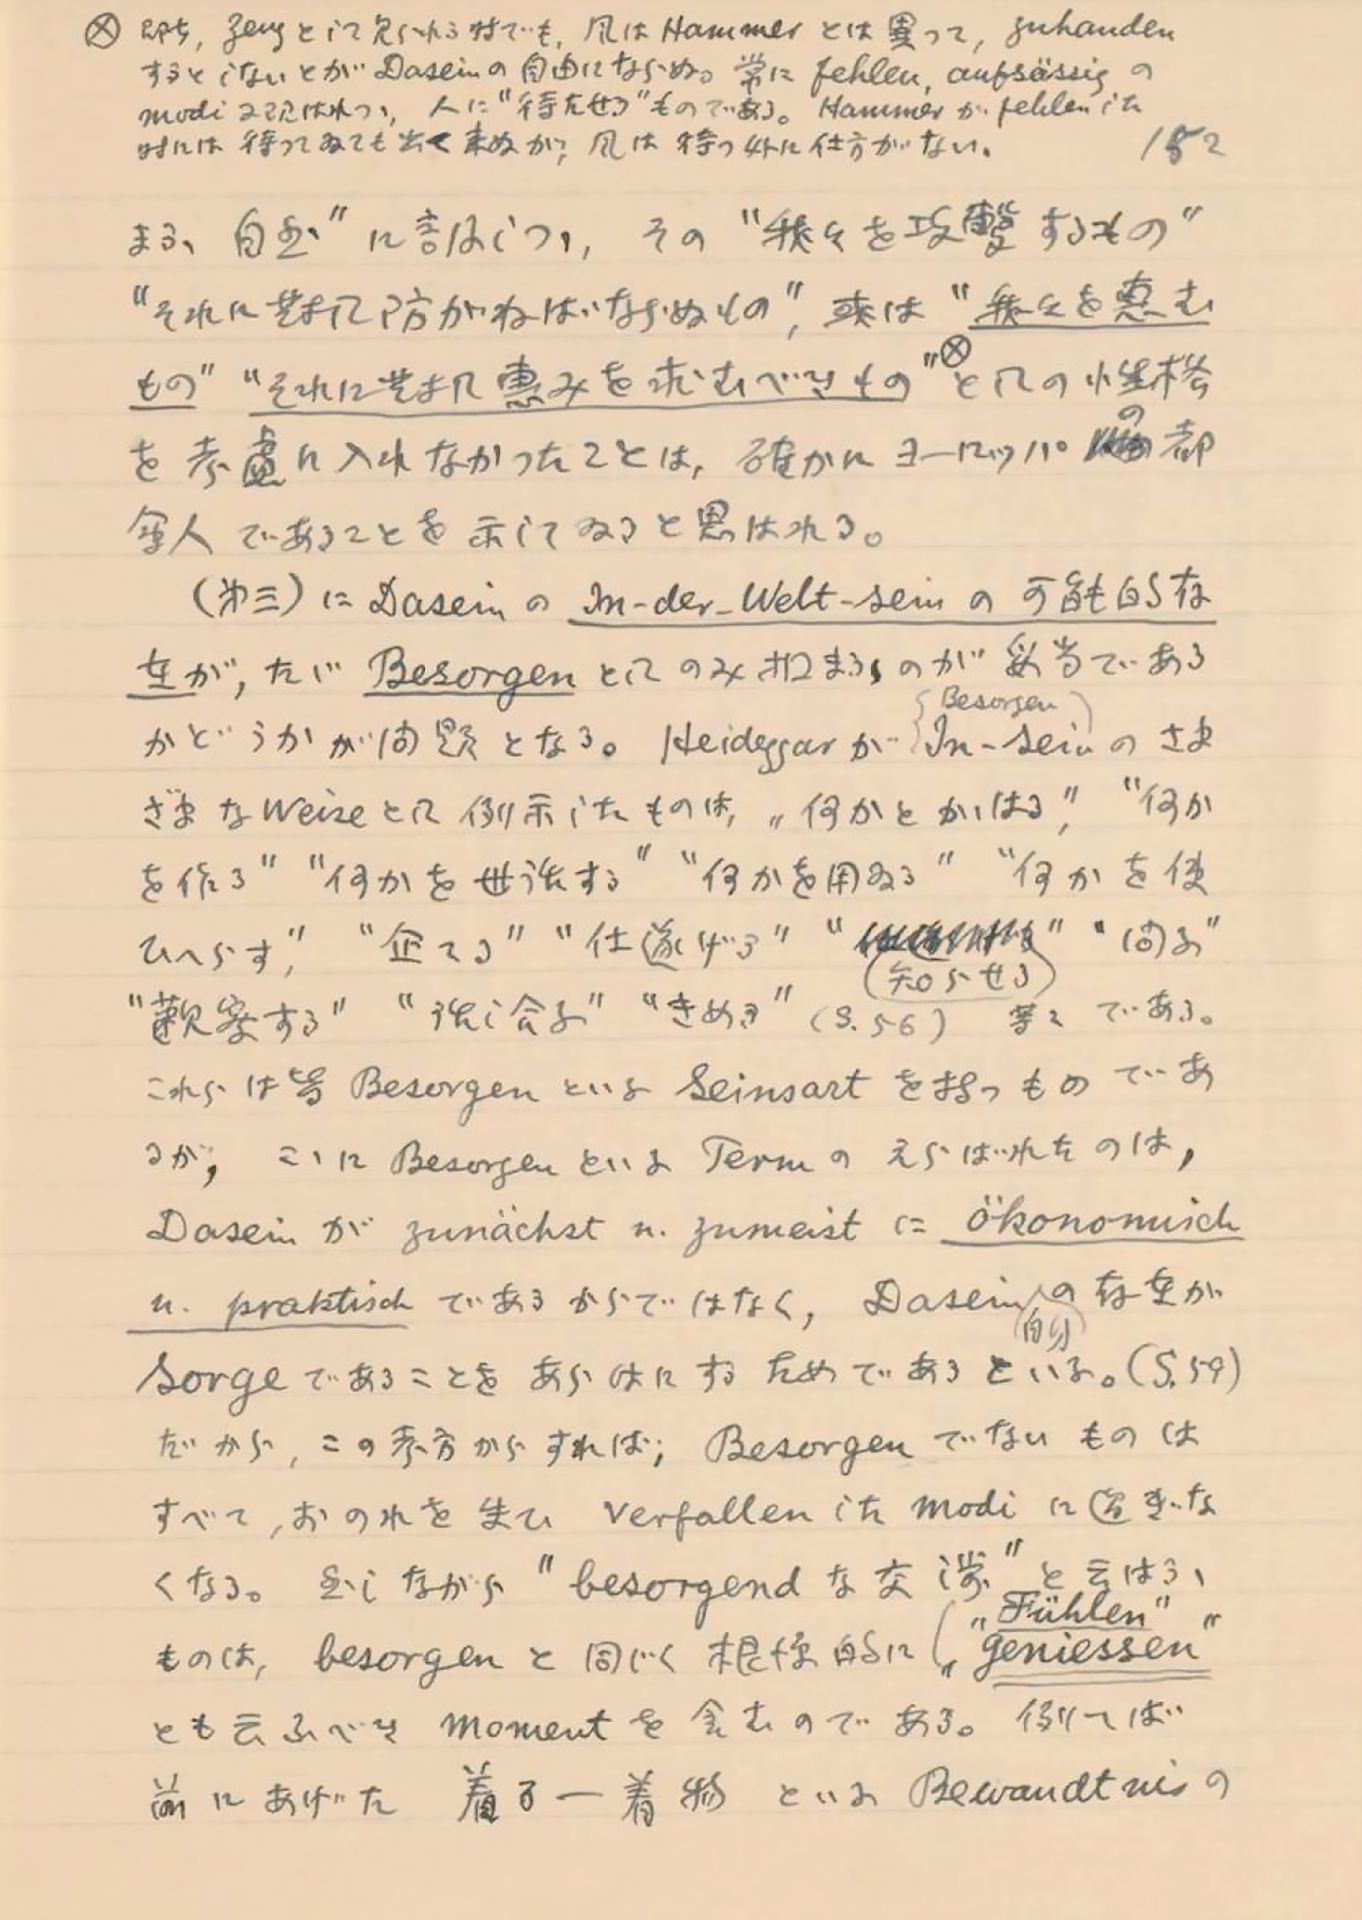 ⊗ 即ち, Zeug として見られる時でも, 風は Hammer とは異って, zuhanden
するとしないとが Dasein の自由にならぬ。常に fehlen, aufsässig の
modi に現はれつゝ, 人に"待たせる"ものである。Hammer が fehlen した
時には待ってゐても出て来ぬが, 風は待つ外に仕方がない。
152
まゝ、自然" に言はしつゝ, その "我々を攻撃するもの"
"それに対して防がねばならぬもの", 或は "我々を恵む
もの" "それに対して恵みを求むべきもの"⊗ としての性格
を考慮に入れなかったことは, 確かにヨーロッパの都
会人であることを示してゐると思はれる。
(第三) に Dasein の In-der-Welt-sein の可能的存
在が, たゞ Besorgen としてのみ把まるゝのが妥当である
Besorgen
かどうかが問題となる。Heideggar が In-sein のさま
ざまな Weise として例示したものは, "何かとかゝはる," "何か
を作る" "何かを世話する" "何かを用ゐる" "何かを使
ひへらす," "企てる" "仕遂げる" " " "問ふ"
(知らせる)
"観察する" "話し合ふ" "きめる" (S.56) 等々である。
これらは皆 Besorgen といふ Seinsart を持つものであ
るが, こゝに Besorgen といふ Term のえらばれたのは,
Dasein が zunächst u. zumeist に ökonomisch
u. praktisch であるからではなく, Dasein の存在が
(自身)
Sorge であることをあらはにするためであるといふ。(S.57)
だから, この考方からすれば, Besorgen でないものは
すべて, おのれを失ひ verfallen した modi に過ぎな
くなる。然しながら "besorgend な交渉" と云はるゝ
"Fühlen"
ものは, besorgen と同じく根源的に "geniessen"
とも云ふべき Moment を含むのである。例へば
前にあげた 着る—着物 といふ Bewandtnis の